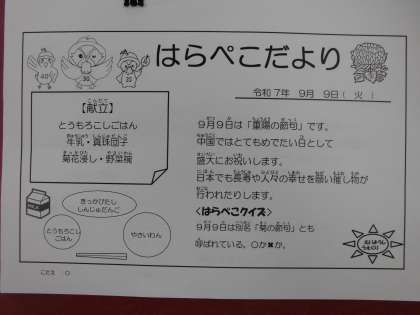 はらぺこだより
令和7年 9月 9日( 火 )
【献立】
とうもろこしごはん
牛乳・真珠団子
菊花浸し・野菜椀
9月9日は「重陽の節句」です。
中国ではとてもめでたい日として
盛大にお祝いします。
日本でも長寿や人々の幸せを願い催し物が
行われたりします。
<はらぺこクイズ>
9月9日は別名「菊の節句」とも
呼ばれている。○か✖か。
きっかびたし
しんじゅだんご
とうもろこし
ごはん
やさいわん
こたえ :○